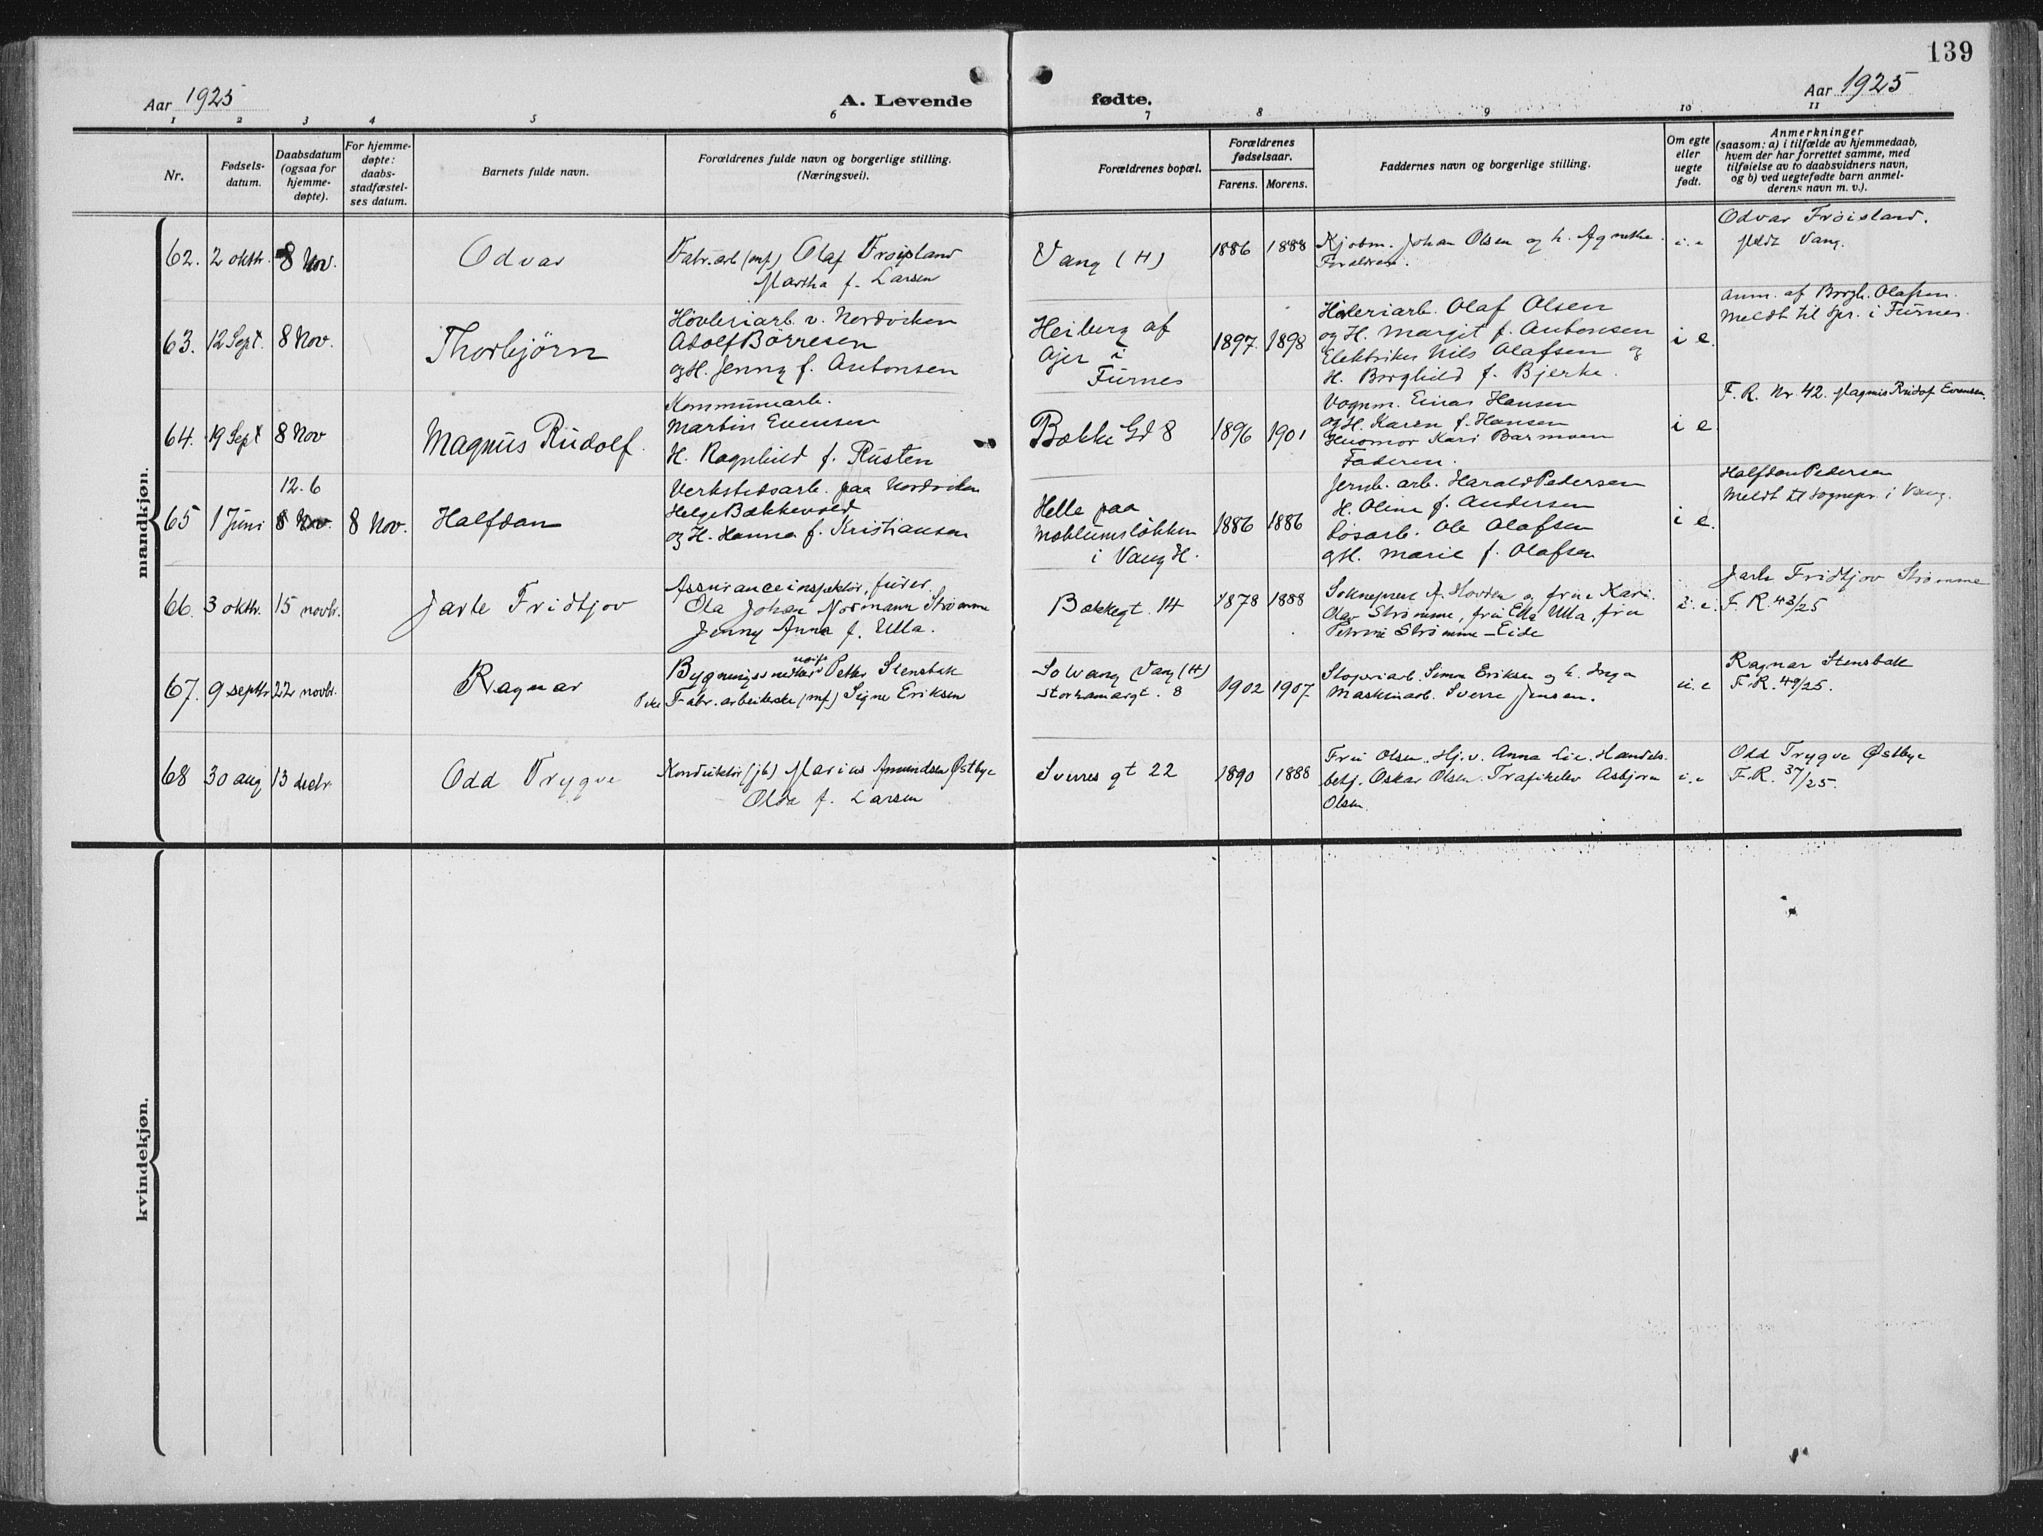 139
Aar 1925
A. Levende
fødte.
Aar 1925
1 2 3 4 5 6 7 8 9 10 11
Nr.
Fødsels-
datum.
Daabsdatum
(ogsaa for
hjemme-
døpte).
For hjemme-
døpte:
daabs-
stadfæstel-
ses datum.
Barnets fulde navn.
Forældrenes fulde navn og borgerlige stilling.
(Næringsvei).
Forældrenes bopæl.
Forældrenes
fødselsaar.
Farens. Morens.
Faddernes navn og borgerlige stilling.
Om egte
eller
uegte
født.
Anmerkninger
(saasom: a) i tilfælde av hjemmedaab,
hvem der har forrettet samme, med
tilføielse av to daabsvidners navn,
og b) ved uegtefødte barn anmel-
derens navn m. v.).
mandkjøn.
62. 2 oktbr. 8 Nov.
Odvar
Fabr.arb (mf) Olaf Frøisland
Martha f. Larsen
Vang (H)
1886 1888
Kjøbm. Johan Olsen og h. Agnethe.
Forældrene.
i.e
Odvar Frøisland.
Vang.
63. 12 Sept. 8 Nov.
Thorbjørn
Høvleriarb. v. Nordviken
Adolf Børresen
og H. Jenny f. Antonsen
Heiberg af
Ajer i
Furnes
1897. 1898
Høvleriarb. Olaf Olsen
og H. Margit f. Antonsen
Elektriker Nils Olafsen og
H. Borghild f. Bjerke.
i e.
anm. af Borgh. Olafsen.
Meldt til Spr. i Furnes.
64. 19 Sept 8 Nov
Magnus Rudolf.
Kommunearb.
Martin Evensen
H. Ragnhild f. Rusten
Bække Gd 8
1896 1901
Vognm. Einar Hansen
og H. Karen f. Hansen
Kari
Faderen.
i e
F. R. Nr 42. Magnus Rudof Evensen.
65 1 Juni 12.6
8 Nov. 8 Nov.
Halfdan
Verkstedsarb. paa Nordviken
Helge Bækkevold
og H. Hanna f. Kristiansen
Helle paa
Møblumsløkken
i Vang H.
1886 1886
Jernb. arb. Harald Pedersen
H. Oline f. Andersen
Løsarb. Ole Olafsen
og H. Marie f. Olafsen
i e.
Halfdan Pedersen
Meldt til Sognepr. i Vang.
66. 3 oktbr. 15 novbr.
Jarle Fridtjov
Assuranceinspektør, furer
Ola Johan Normann Strømme
Jenny Anna f. Ulla.
Bækkegt. 14
1878 1888
Sokneprest A. Hovden og frue Kari.
Olav Strømme, fru Ella Ulla, fru
Petrine Strømme-Eide
i. e.
Jarle Fridtjov Strømme
F. R. 43/25
67. 9 septbr 22 novbr.
Ragnar
Bygningssnedker Petter Stensbak
Pike Fabr.arbeiderske (mf) Signe Eriksen
Solvang Vang (H)
Storhamargt. 8
1902 1907
Støperiarb. Simon Eriksen og h. Inga
Maskinarb. Sverre Jensen.
u. e
Ragnar Stensbak
F. R. 49/25.
68 30 aug 13 decbr.
Odd Trygve
Konduktør (jb) Marius Amundsen Østbye
Olda f. Larsen
Sverres gt 22
1890 1888
Fru Olsen. Hj.v. Anna Lie. Handels-
betj. Oskar Olsen. Trafikelev Asbjørn
Olsen.
i.e
Odd Trygve Østbye
F. R. 37/25.
kvindekjøn.